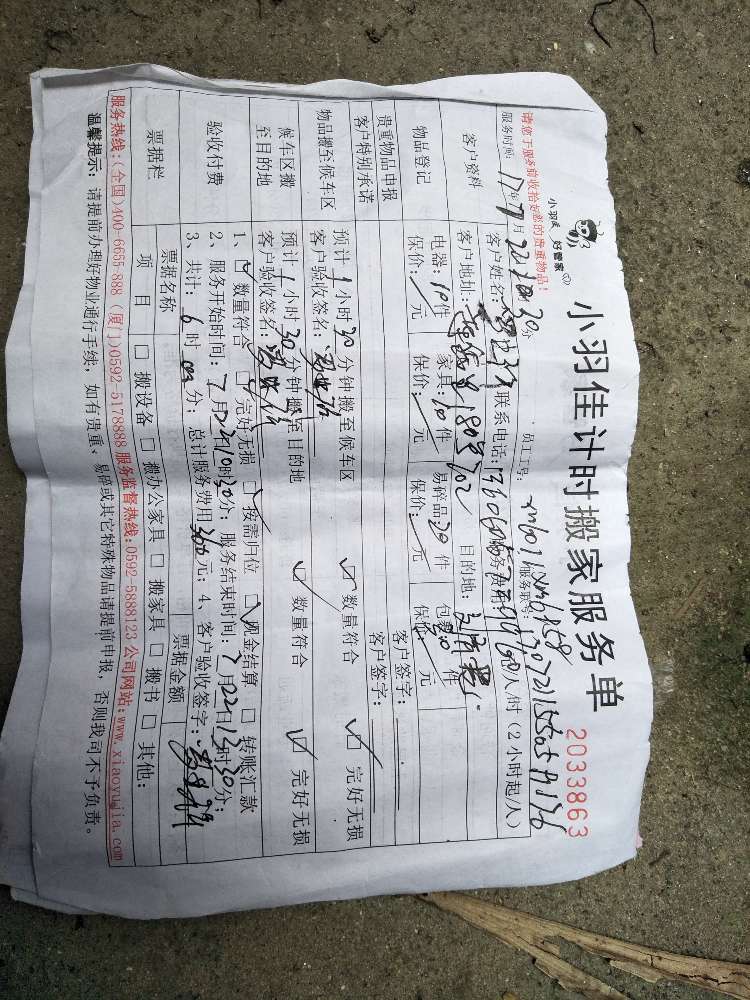 小羽佳 好管家
小羽佳计时搬家服务单
2033863
请您于服务前收拾好您的贵重物品!
服务时间: 17年7月22日 时30分 员工工号: 服务账号:
客户资料
客户姓名: 联系电话: 服务费用: 60/人/时(2小时起/人)
客户地址: 180号702 目的地:
物品登记
电器: 10件 家具: 10件 易碎品20件 包裹: 20件
保价: 元 保价: 元 保价: 元 保价: 元
贵重物品申报
客户特别承诺
客户签字:
客户签字:
物品搬至候车区
预计1小时30分钟搬至候车区 ☑ 数量符合 ☑ 完好无损
客户验收签名:
候车区搬至目的地
预计1小时30分钟搬至目的地 ☑ 数量符合 ☑ 完好无损
客户验收签名:
验收付费
1、☑ 数量符合 ☑ 完好无损 ☑ 按需归位 ☑ 现金结算 □ 转账汇款
2、服务开始时间: 7月22日10时30分; 服务结束时间: 7月22日13时30分;
3、共计: 6时00分; 总计服务费用360元; 4、客户验收签字:
票据栏
票据名称 票据金额
项目 □ 搬设备 □ 搬办公家具 □ 搬家具 □ 搬书 □ 其他:
服务热线:(全国)400-6655-888 (厦门)0592-5178888 服务监督热线:0592-5888123 公司网站:www.xiaoyujia.com
温馨提示: 请提前办理好物业通行手续, 如有贵重、易碎或其它特殊物品请提前申报, 否则我司不予负责。